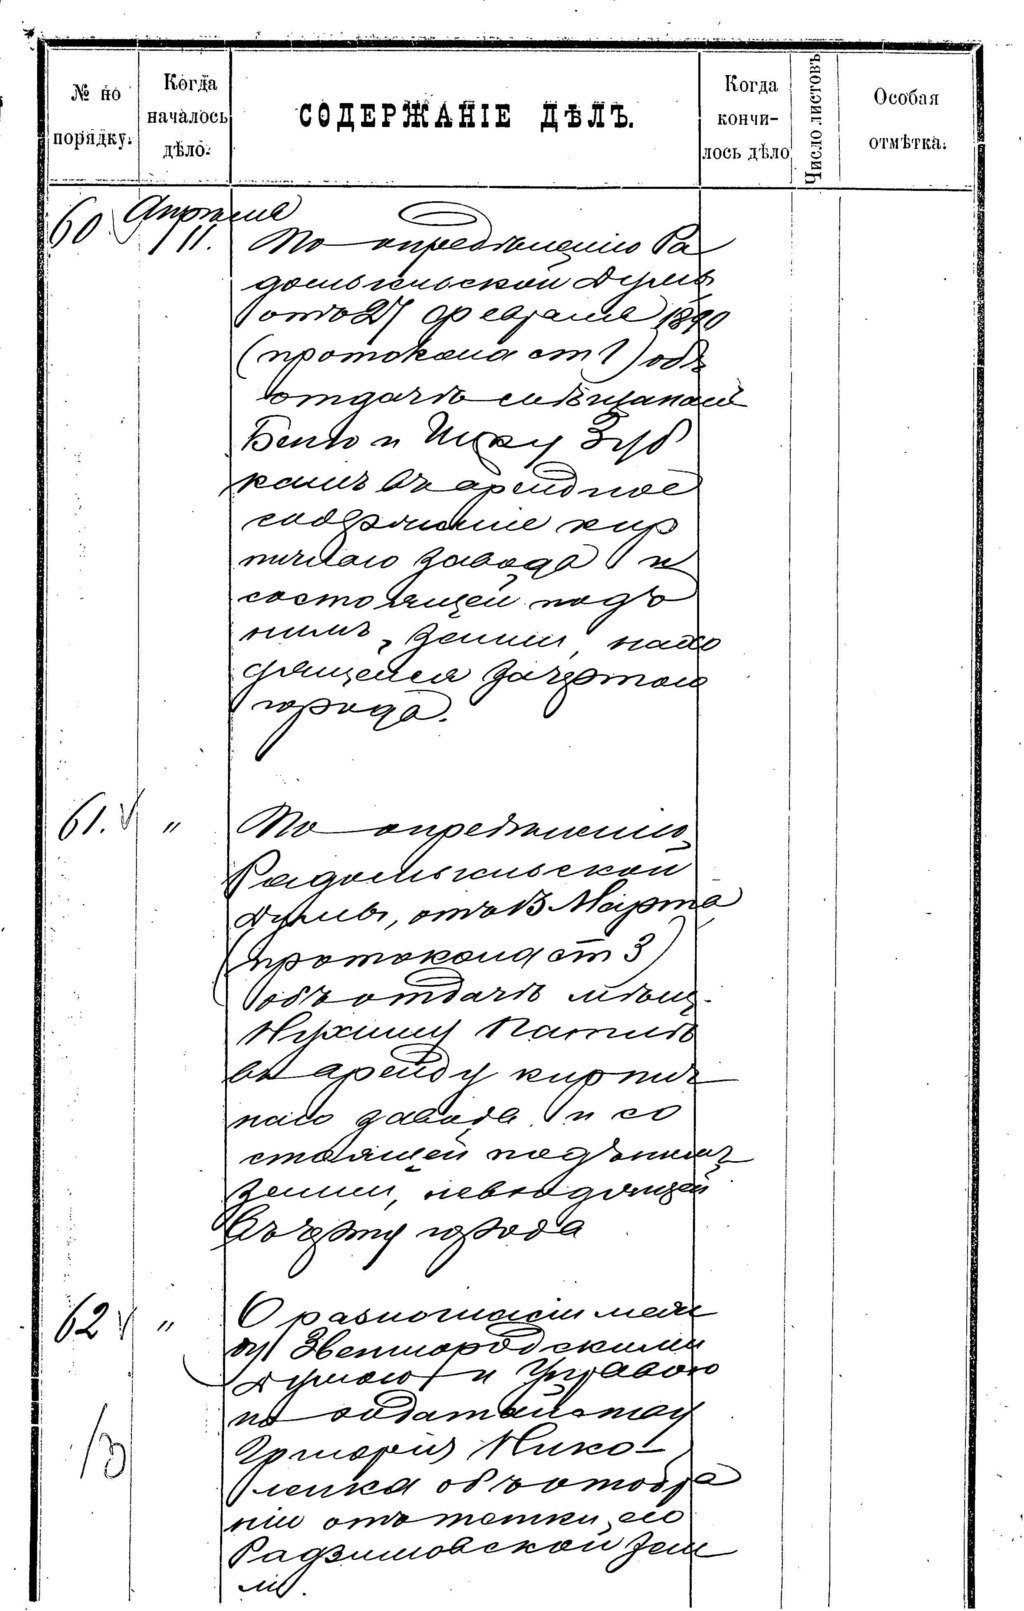 № по порядку.
Когда началось дѣло.
СОДЕРЖАНІЕ ДѢЛЪ.
Когда кончи-лось дѣло
Число листовъ
Особая отмѣтка.
60 Апрѣля 11. По опредѣленію Ра
домысльской Думы
отъ 27 февраля 1890
(протокола ст 1) объ
отдачѣ мѣщанамъ
Бенѣ и Ицку Зуб
камъ въ арендное
содержаніе кир
пичнаго завода и
состоящей подъ
нимъ, земли, нахо
дящейся за чертою
города.
61. V " По опредѣленію
Радомысльской
Думы, отъ 13 Марта
(протокола ст 3)
объ отдачѣ мѣщ.
Нухиму
въ аренду кирпич
наго завода и со
стоящей подъ нимъ
земли, невходящей
въ черту города
62 V " О разногласіи меж
ду Звенигородскими
Думою и Управою
по ходатайству
Григорія Нико-
ленка объ отобра
ніи отъ тетки его
Радзимовской зем
ли.
13